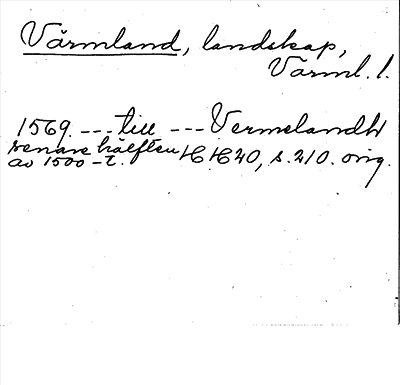 Värmland, landskap,
Värml. l.
1569. --- till --- Vermelandh
senare hälften HH20, s. 210. orig.
av 1500-t.